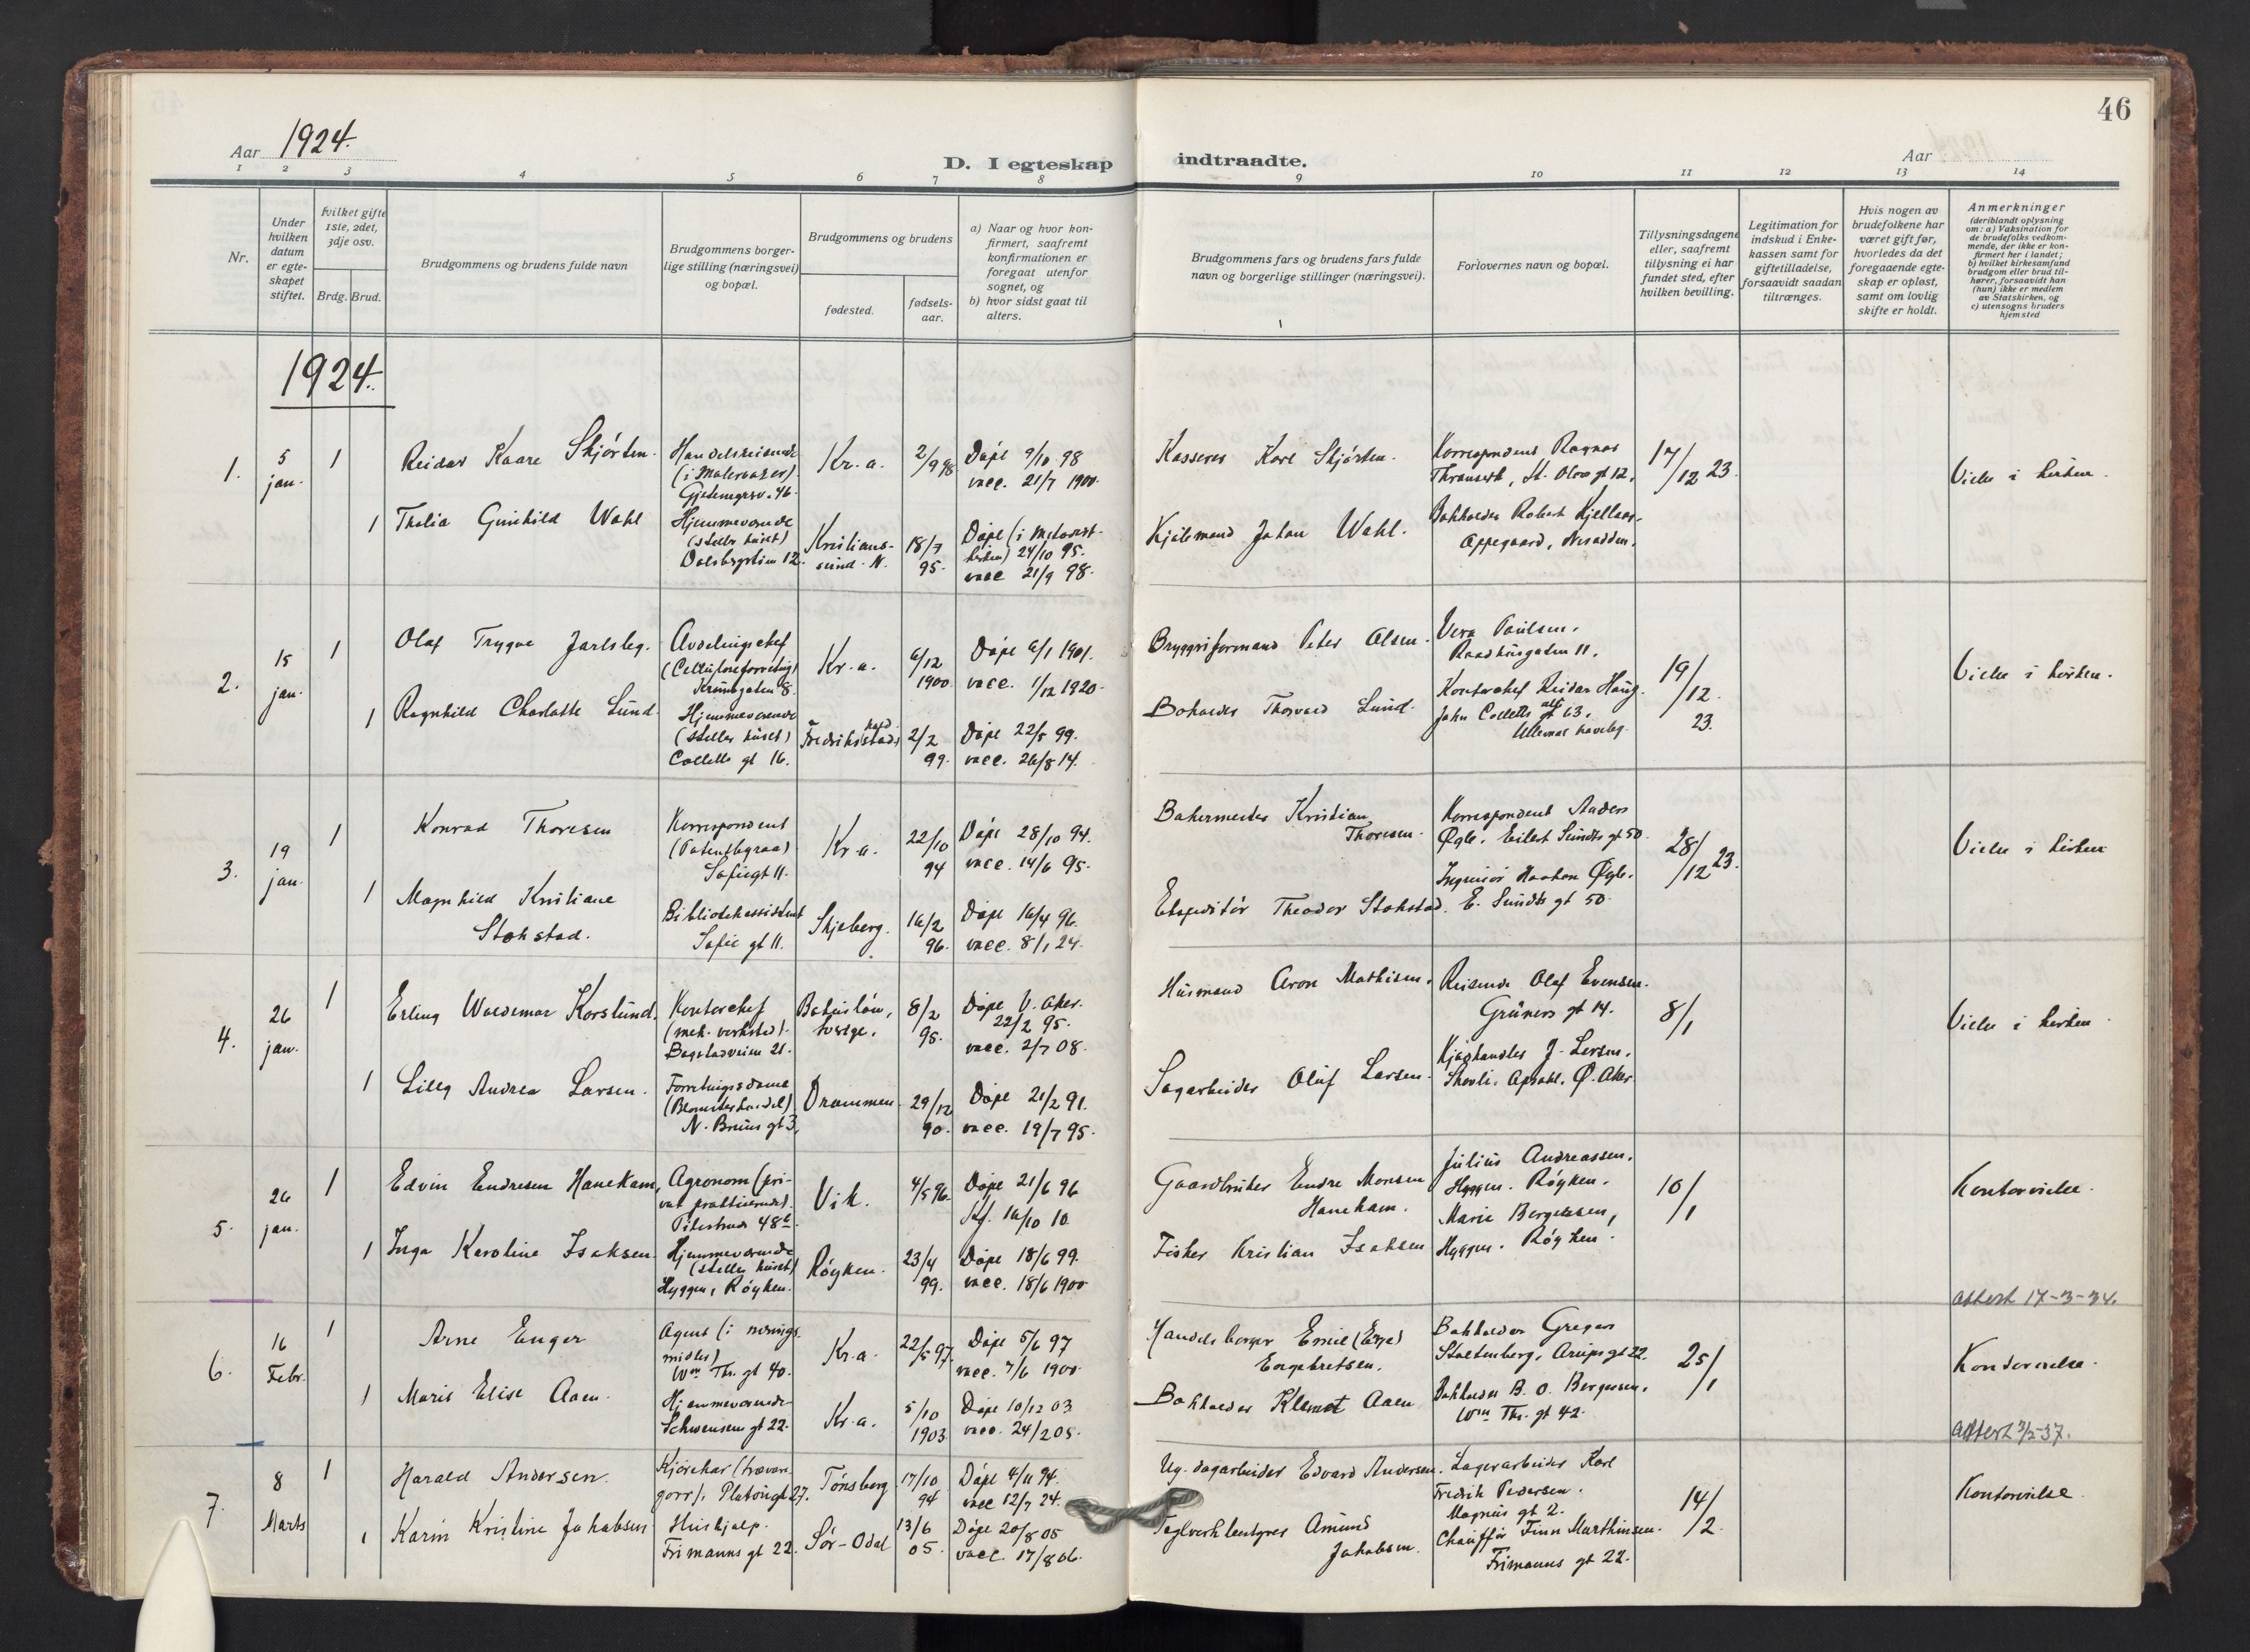 46
Aar 1924.
D. I egteskap indtraadte.
Aar
1 2 3 4 5 6 7 8 9 10 11 12 13 14
Nr.
Under hvilken datum er egte-skapet stiftet.
hvilket gifte 1ste, 2det, 3dje osv.
Brdg. Brud.
Brudgommens og brudens fulde navn
Brudgommens borger-
lige stilling (næringsvei)
og bopæl.
Brudgommens og brudens
fødested.
fødsels-
aar.
a) Naar og hvor kon-
firmert, saafremt
konfirmationen er
foregaat utenfor
sognet, og
b) hvor sidst gaat til
alters.
Brudgommens fars og brudens fars fulde
navn og borgerlige stillinger (næringsvei).
Forlovernes navn og bopæl.
Tillysningsdagene
eller, saafremt
tillysning ei har
fundet sted, efter
hvilken bevilling.
Legitimation for
indskud i Enke-
kassen samt for
giftetilladelse,
forsaavidt saadan
tiltrænges.
Hvis nogen av
brudefolkene har
været gift før,
hvorledes da det
foregaaende egte-
skap er opløst,
samt om lovlig
skifte er holdt.
Anmerkninger
(deriblandt oplysning
om: a) Vaksination for
de brudefolks vedkom-
mende, der ikke er kon-
firmert her i landet;
b) hvilket kirkesamfund
brudgom eller brud til-
hører, forsaavidt han
(hun) ikke er medlem
av Statskirken, og
c) utensogns bruders
hjemsted
1924.
1. 5 jan. 1
Reidar Kaare Skjórten.
Handelsreisende
(i Malervarer)
46.
Kr.a.
2/9 98
Døpt 9/10 98
vacc. 21/7 1900.
Kasserer Karl Skjórten.
Korrespondent Ragnar
St. Olavs gt 12.
17/12 23.
Vielse i kirken.
1 Thalia Gunhild Wahl
Hjemmeværende
(steller huset)
12.
Kristians-
sund. N.
18/7
95.
Døpt (i Metodist-
kirken) 24/10 95.
vacc 21/9 98.
Johan Wahl.
Bokholder Robert
Oppegaard, Nesodden.
2. 15 jan. 1
Olaf Trygve Jarlsbg.
Avdelingschef
8.
Kr.a.
6/12
1900
Døpt 6/1 1901.
vacc. 1/12 1920.
Bryggeriformand Peter Olsen.
Vera Paulsen.
Raadhusgaten 11.
19/12.
23.
Vielse i kirken.
1 Ragnhild Charlotte Lund
Hjemmeværende
(steller huset)
Colletts gt 16.
Fredrikstad
2/2
99.
Døpt 22/5 99.
vacc. 26/8 14.
Bokholder Thorvald Lund.
Kontorchef Reidar Haug.
John Colletts alle 63.
Ullevaal haveby.
3. 19 jan. 1
Konrad Thoresen
Korrespondent
Sofiegt 11.
Kr.a.
22/10
94
Døpt 28/10 94.
vacc. 14/6 95.
Bakermester Kristian
Thoresen.
Korrespondent Anders
Øgle, Eilert Sundts gt 50.
28/12 23.
Vielse i kirken
1 Magnhild Kristiane
Stokstad.
Bibliotekassistent
Sofie gt 11.
Skjeberg.
16/2
96.
Døpt 16/4 96.
vacc. 8/1 24.
Ekspeditør Theodor Stokstad.
Ingeniør Haakon Øgle.
E. Sundts gt 50.
4. 26 jan. 1
Erling Waldemar Korslund.
Kontorchef
(mek. verksted).
21.
Bohuslän,
Sverige.
8/2
95.
Døpt V. Aker.
22/2 95.
vacc. 2/7 08.
Husmand Aron Mathisen.
Reisende Olaf Evensen.
Grüners gt 14.
8/1
Vielse i kirken
1 Lilly Andrea Larsen.
Forretningsdame
(Blomsterhandel)
N. Bruns gt 3,
Drammen
29/12
90.
Døpt 21/2 91.
vacc. 19/7 95.
Sagarbeider Oluf Larsen.
Ø. Aker.
5. 26 jan. 1
Edvin Endresen Hanekam,
Agronom (pri-
vat praktiserende).
Pilestrede 48b.
Vik.
4/5 96.
Døpt 21/6 96
Kf. 16/10 10
Gaardbruker Endre Monsen
Hanekam.
Julius Andreassen.
Hyggen. Røyken.
10/1
Kontorvielse.
1 Inga Karoline Isaksen
Hjemmeværende
(steller huset)
Hyggen, Røyken.
Røyken.
23/4
99.
Døpt 18/6 99.
vacc. 18/6 1900
Fisker Kristian Isaksen
Marie Bergersen,
Hyggen. Røyken.
attest 17-3-34.
6. 16 Febr. 1
Arne Enger
Agent (i nærings
midler)
Wm Thr. gt 40.
Kr.a.
22/5 97.
Døpt 5/6 97
vacc. 7/6 1900.
Emil
Engebretsen.
Bokholder Gregers
Stoltenberg, Arups gt 22.
25/1
Kontorvielse.
1 Maris Elise Aaen.
Hjemmeværende
Schwensens gt 22.
Kr.a.
5/10
1903
Døpt 10/12 03
vacc. 24/2 05.
Bokholder Klemet Aaen
Bokholder B. O. Bergersen.
Wm Thr. gt 42.
attest 3/2-37.
7. 8 Marts 1
Harald Andersen.
Kjørekar
Platousgt 27.
Tønsberg
17/10
94
Døpt 4/11 94.
vacc 12/7 24.
Edvard Andersen.
Lagerarbeider Karl
Fredrik Pedersen.
Magnus gt 2.
14/2.
Kontorvielse.
1 Karin Kristine Jakobsen
Hushjælp.
Frimanns gt 22.
Sør-Odal
13/6
05.
Døpt 20/8 05
vacc. 17/8 06.
Amund
Jakobsen.
Chauffør Finn Marthinsen.
Frimanns gt 22.